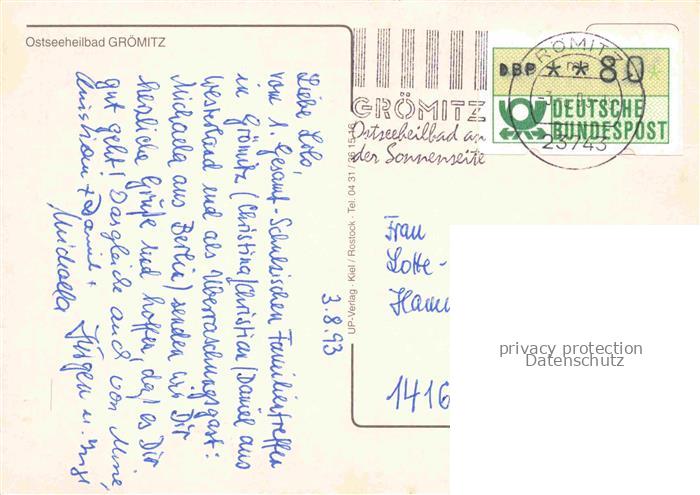 Ostseeheilbad GRÖMITZ
Liebe Lolo,
vom 1. Gesamt-Schulzischen Familientreffen
in Grömitz (Christina/Christian/Daniel aus
Westerland und als Überraschungsgast:
Michaela aus Berlin) senden wir Dir
herzliche Grüße und hoffen, daß es Dir
gut geht! Dasgleiche auch von
Christian + Daniel +
Michaela Jürgen u. Inge
3.8.93
UP-Verlag · Kiel / Rostock · Tel. 04 31 /
GRÖMITZ
Ostseeheilbad an
der Sonnenseite
GRÖMITZ
23743
DBP * * 80
DEUTSCHE
BUNDESPOST
Frau
Lotte-
1416
privacy protection
Datenschutz